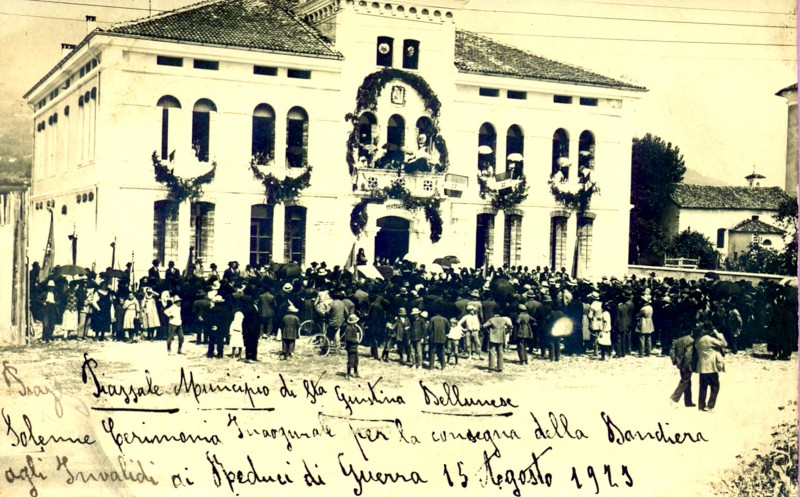 Piazzale Municipio di Sta Giustina Bellunese
Solenne Cerimonia Inaugurale per la consegna della Bandiera
agli Invalidi ai Reduci di Guerra 15 Agosto 1923